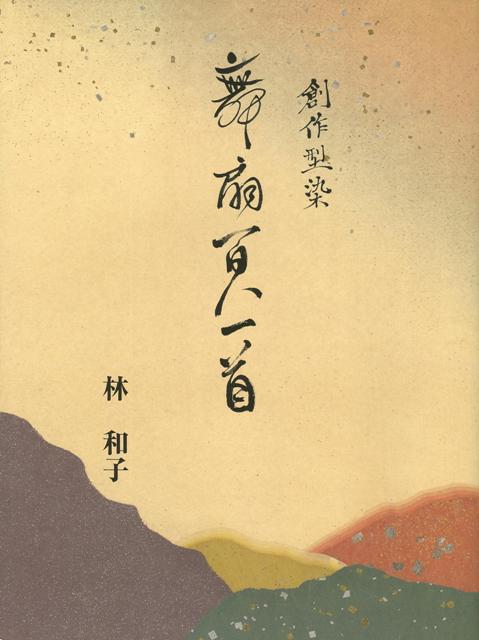 創作型染
舞扇百人一首
林 和子